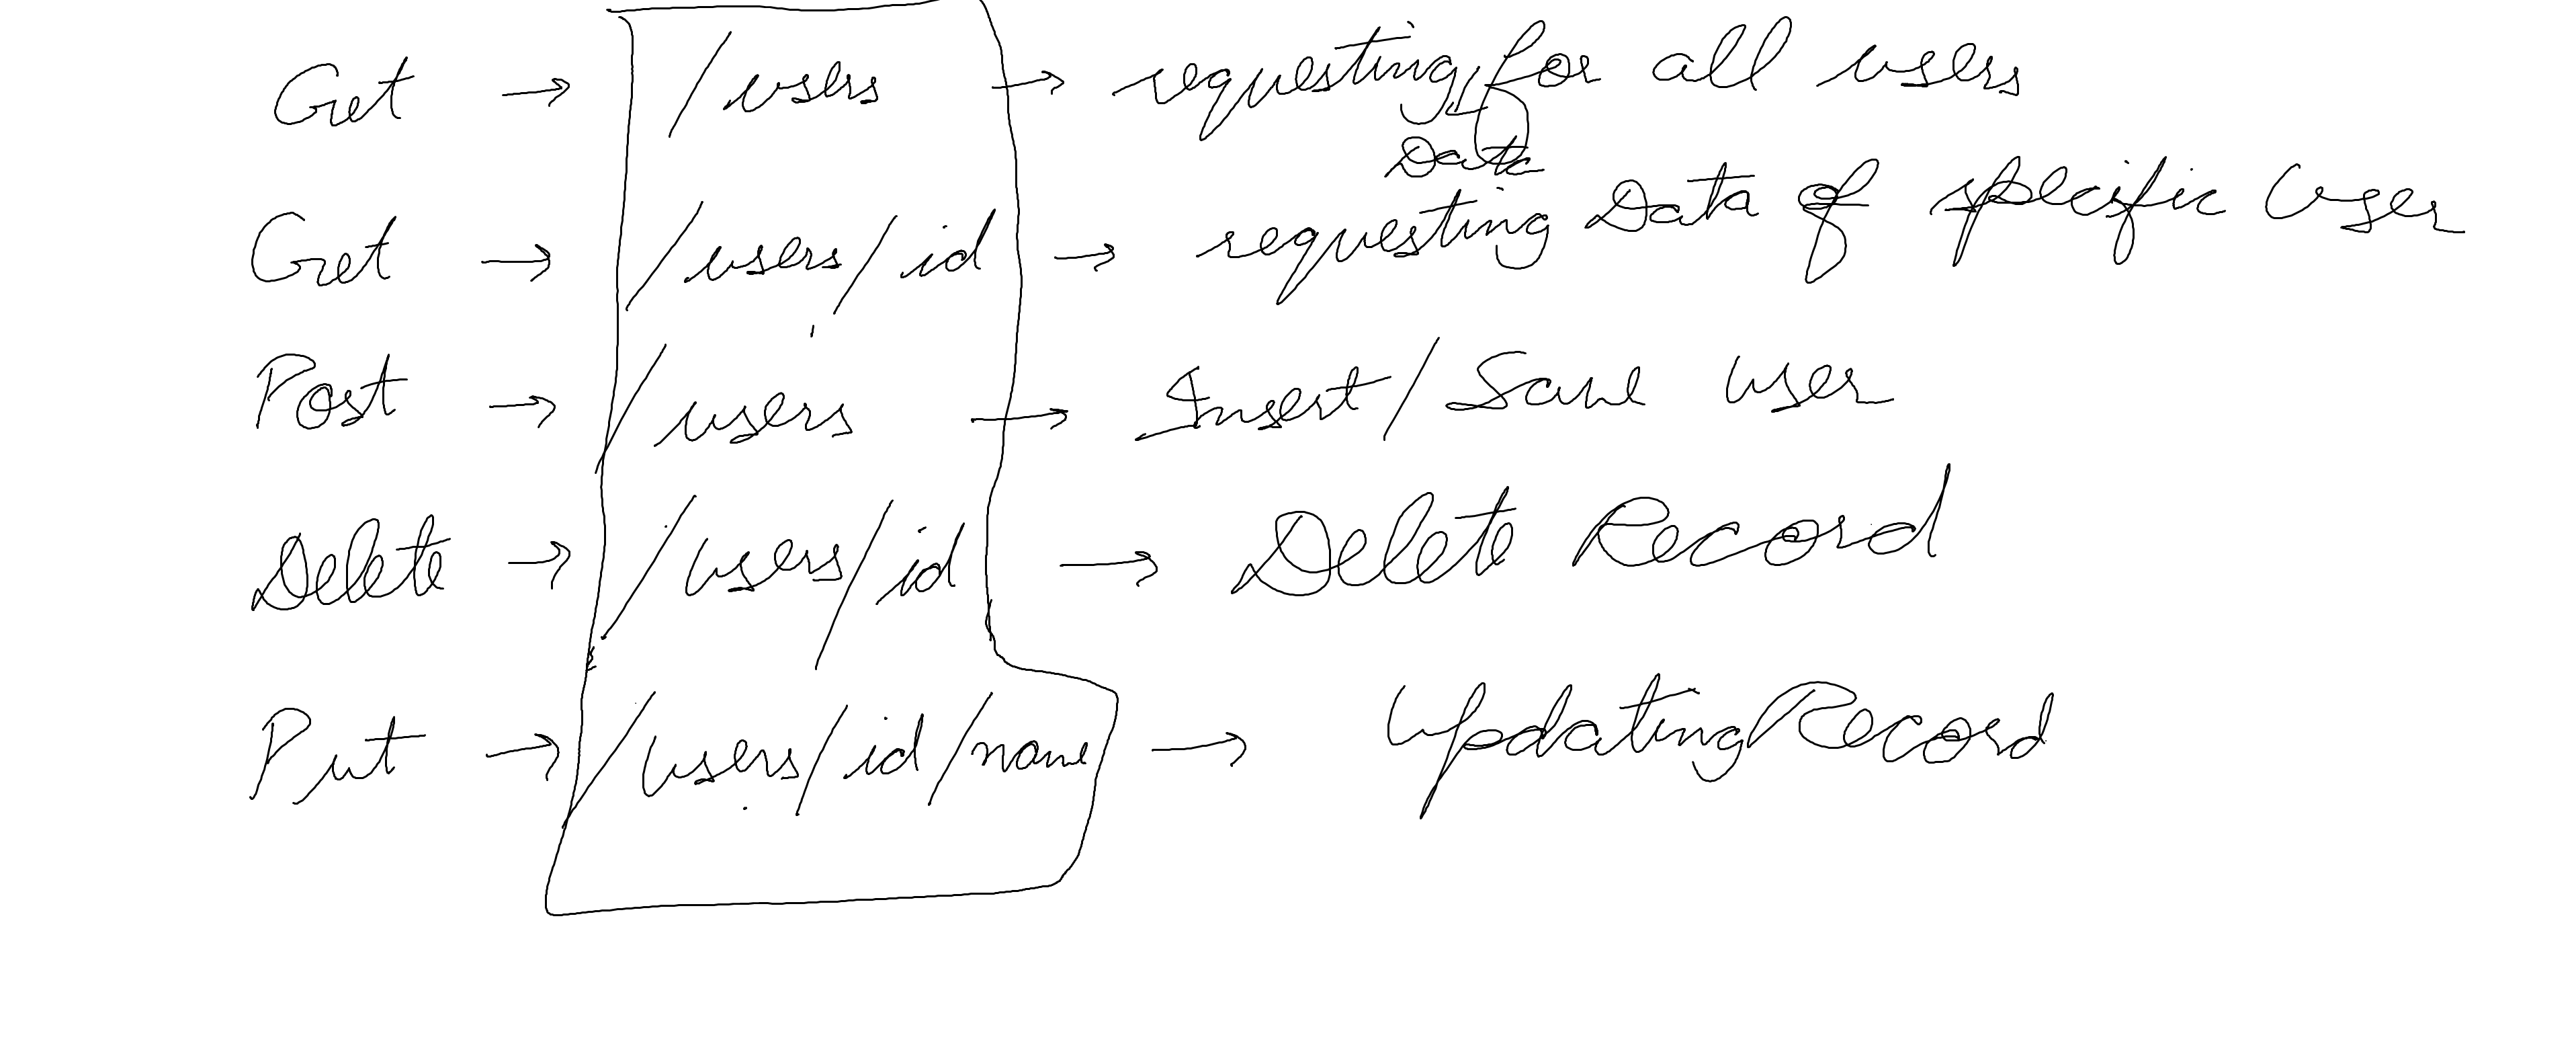 Get → /users → requesting Data for all users
Get → /users/id → requesting Data of specific User
Post → /users → Insert/Save user
Delete → /users/id → Delete Record
Put → /users/id/name → Updating Record